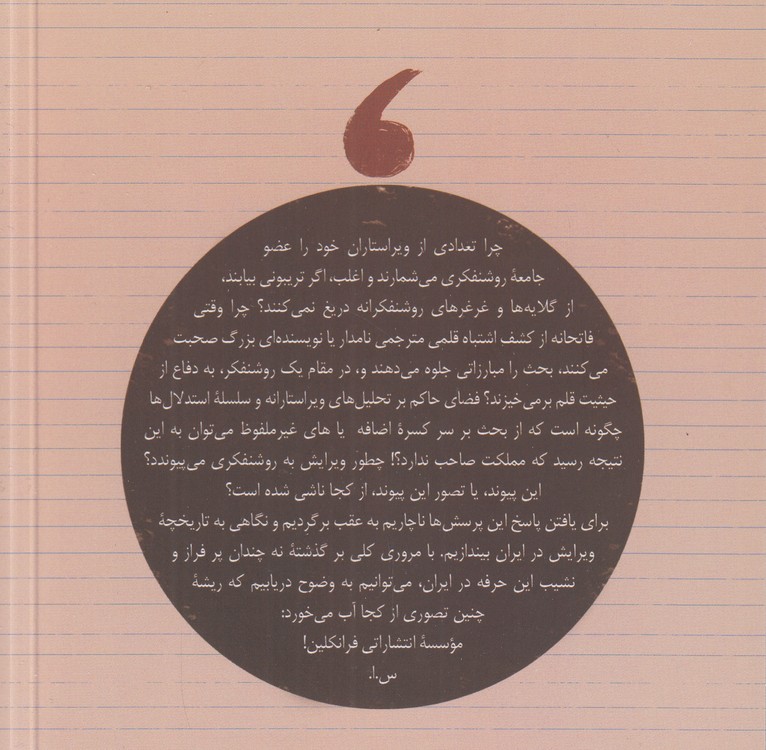 چرا تعدادی از ویراستاران خود را عضو
جامعهٔ روشنفکری می‌شمارند و اغلب، اگر تریبونی بیابند،
از گلایه‌ها و غرغرهای روشنفکرانه دریغ نمی‌کنند؟ چرا وقتی
فاتحانه از کشف اشتباه قلمی مترجمی نامدار یا نویسنده‌ای بزرگ صحبت
می‌کنند، بحث را مبارزاتی جلوه می‌دهند و، در مقام یک روشنفکر، به دفاع از
حیثیت قلم برمی‌خیزند؟ فضای حاکم بر تحلیل‌های ویراستارانه و سلسلهٔ استدلال‌ها
چگونه است که از بحث بر سر کسرهٔ اضافه یا های غیرملفوظ می‌توان به این
نتیجه رسید که مملکت صاحب ندارد؟! چطور ویرایش به روشنفکری می‌پیوندد؟
این پیوند، یا تصور این پیوند، از کجا ناشی شده است؟
برای یافتن پاسخ این پرسش‌ها ناچاریم به عقب برگردیم و نگاهی به تاریخچهٔ
ویرایش در ایران بیندازیم. با مروری کلی بر گذشتهٔ نه چندان پر فراز و
نشیب این حرفه در ایران، می‌توانیم به وضوح دریابیم که ریشهٔ
چنین تصوری از کجا آب می‌خورد:
مؤسسهٔ انتشاراتی فرانکلین!
س.ا.